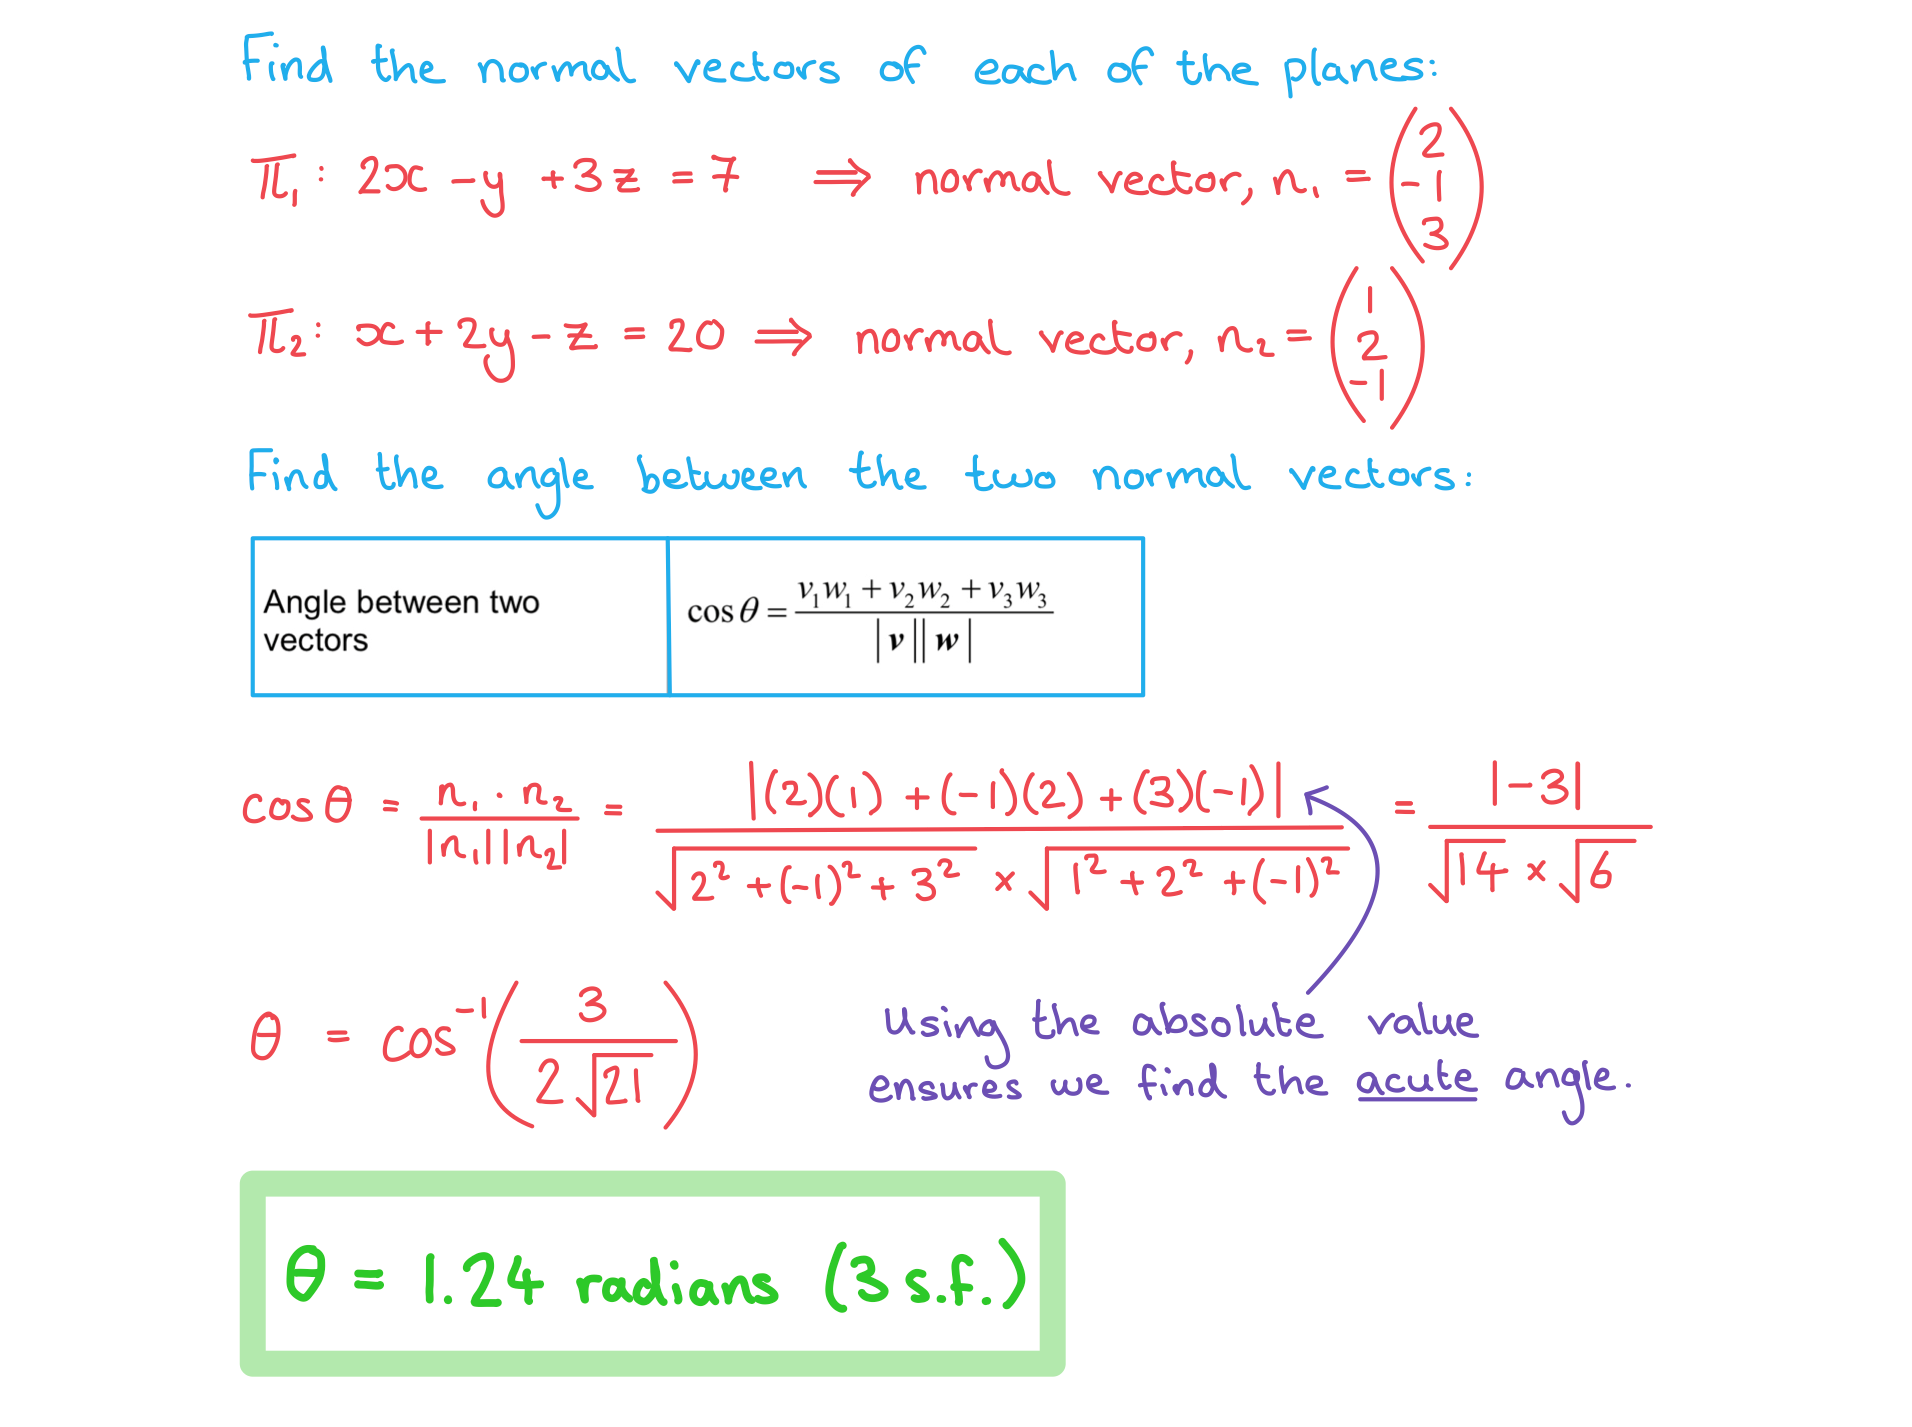 Find the normal vectors of each of the planes:
π₁: 2x - y + 3z = 7 ⟹ normal vector, n₁ = (2 -1 3)
π₂: x + 2y - z = 20 ⟹ normal vector, n₂ = (1 2 -1)
Find the angle between the two normal vectors:
Angle between two
vectors
cos θ = (v₁w₁ + v₂w₂ + v₃w₃) / |v||w|
cos θ = n₁ · n₂ / |n₁||n₂| = |(2)(1) + (-1)(2) + (3)(-1)| / √(2² + (-1)² + 3²) × √(1² + 2² + (-1)²) = |-3| / √14 × √6
θ = cos⁻¹(3 / 2√21)
Using the absolute value
ensures we find the acute angle.
θ = 1.24 radians (3 s.f.)